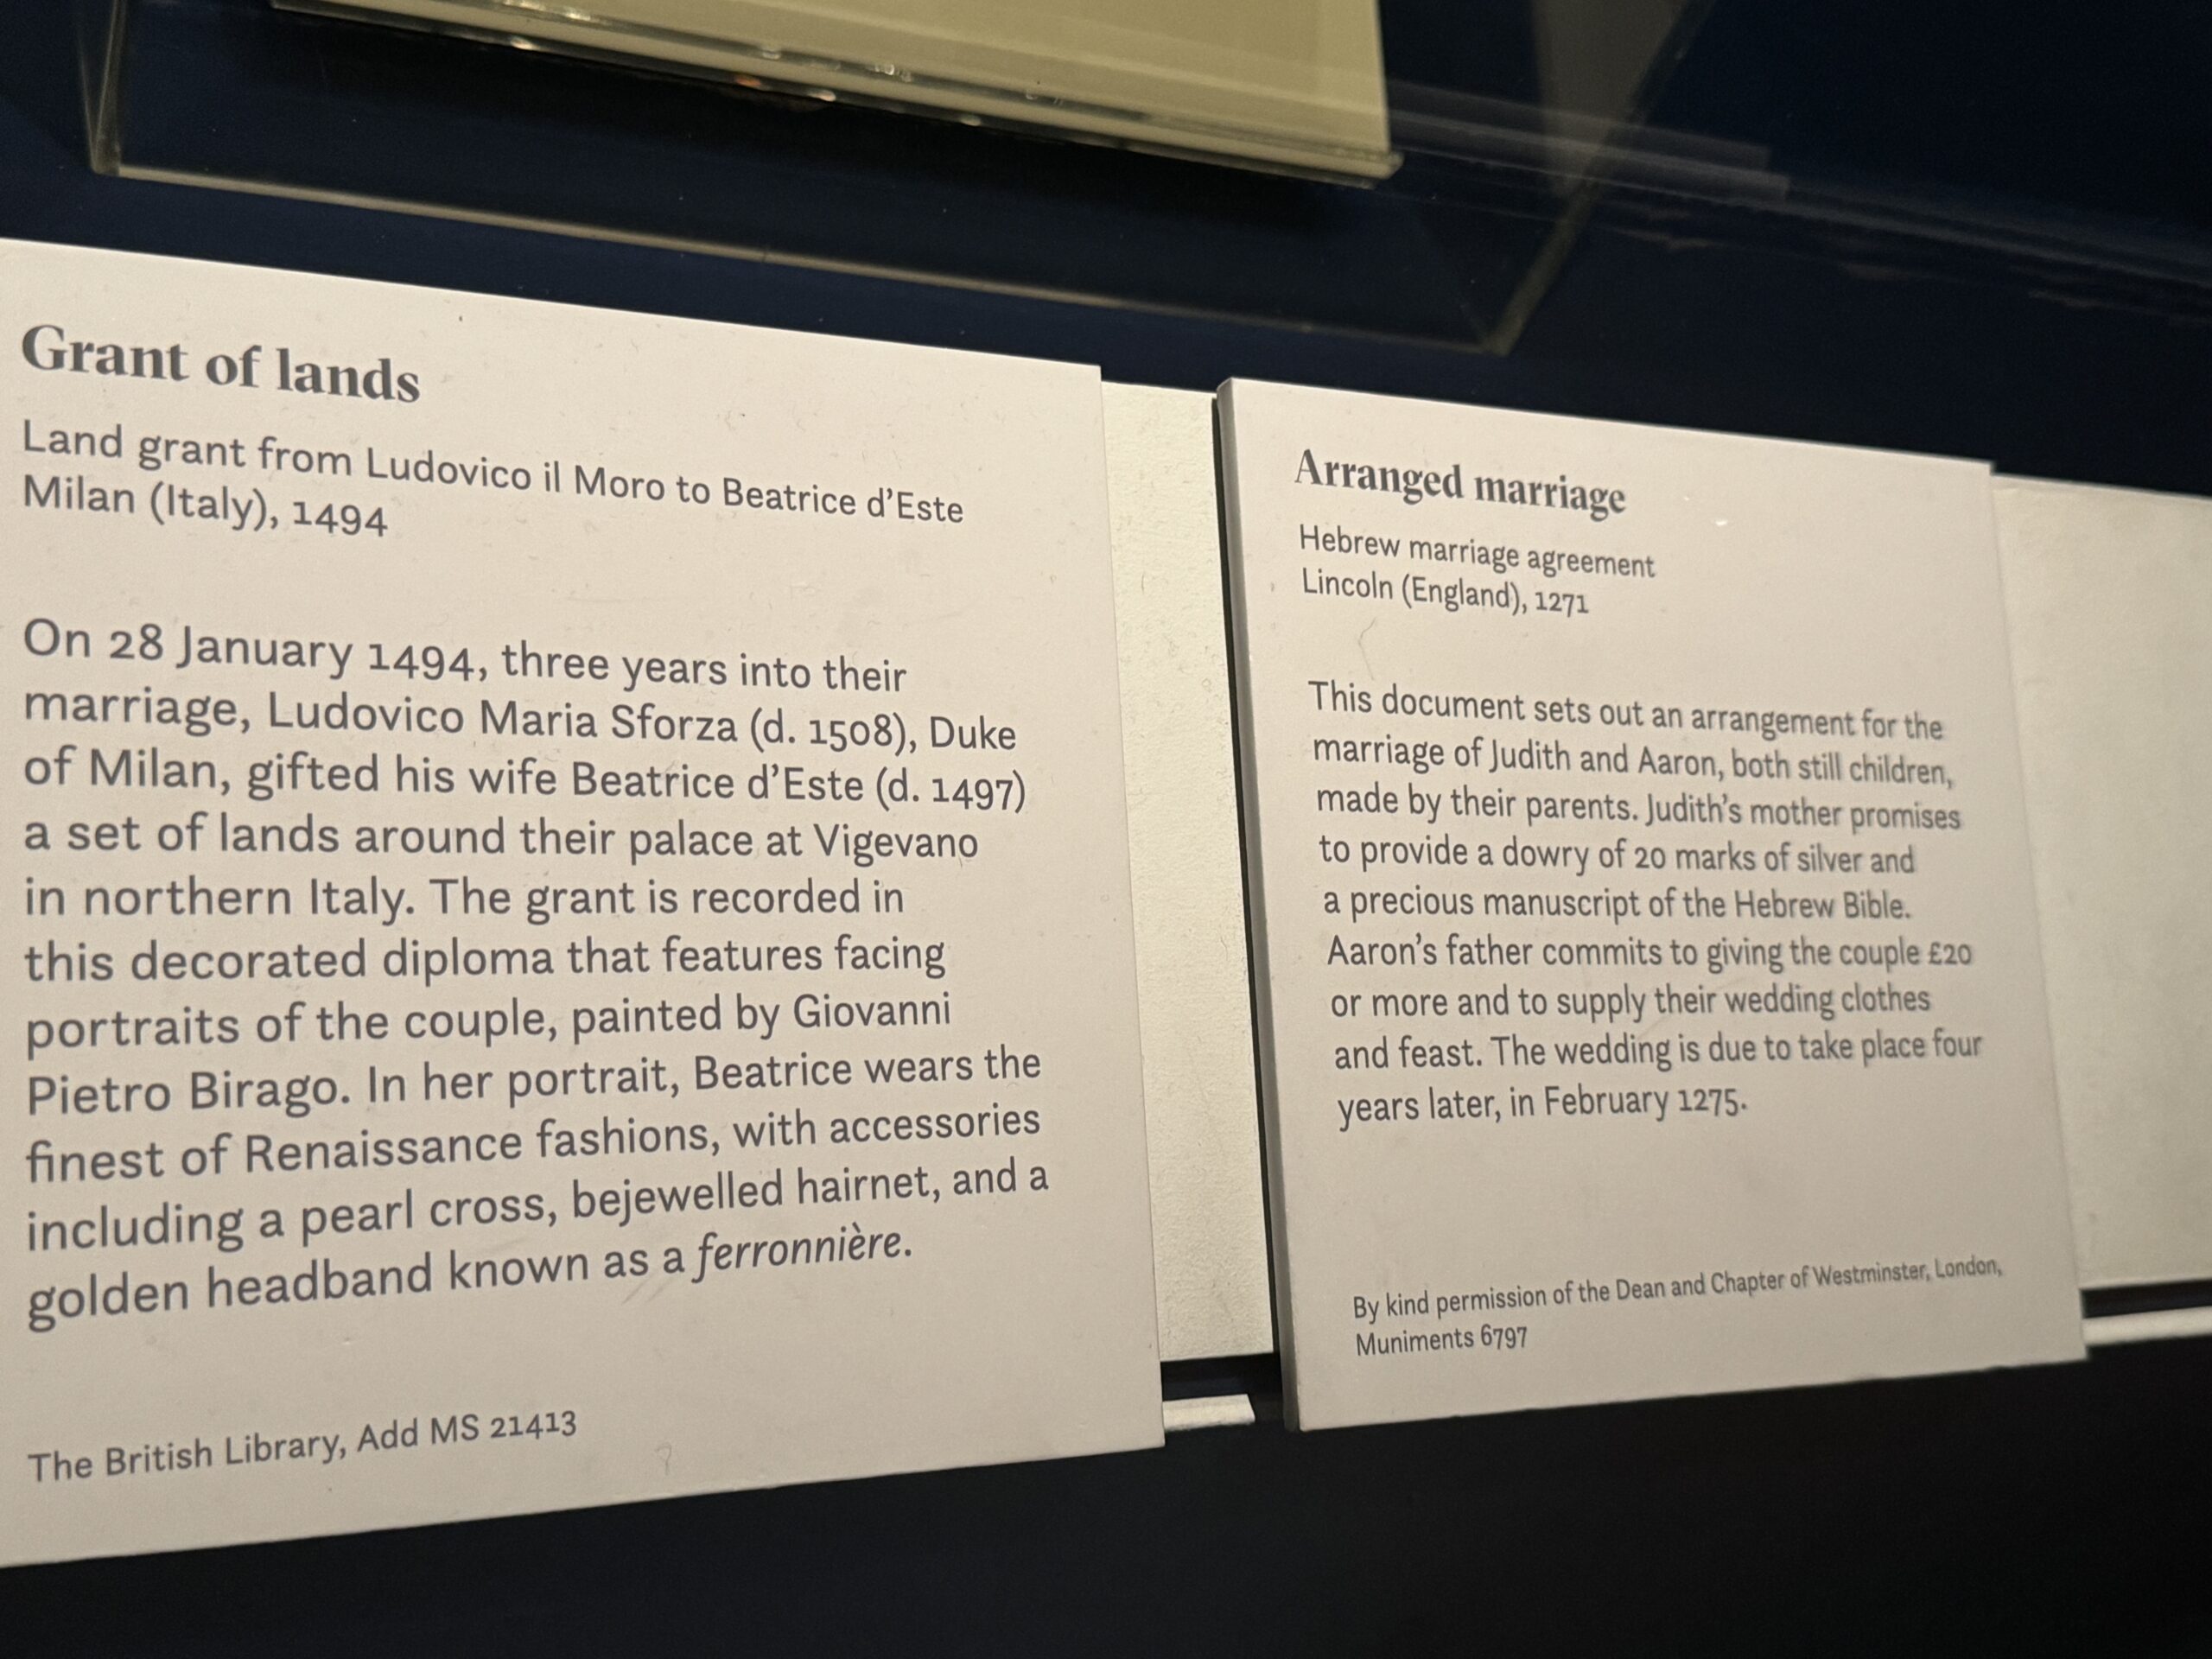 Grant of lands
Land grant from Ludovico il Moro to Beatrice d'Este
Milan (Italy), 1494
On 28 January 1494, three years into their
marriage, Ludovico Maria Sforza (d. 1508), Duke
of Milan, gifted his wife Beatrice d'Este (d. 1497)
a set of lands around their palace at Vigevano
in northern Italy. The grant is recorded in
this decorated diploma that features facing
portraits of the couple, painted by Giovanni
Pietro Birago. In her portrait, Beatrice wears the
finest of Renaissance fashions, with accessories
including a pearl cross, bejewelled hairnet, and a
golden headband known as a ferronnière.
The British Library, Add MS 21413
Arranged marriage
Hebrew marriage agreement
Lincoln (England), 1271
This document sets out an arrangement for the
marriage of Judith and Aaron, both still children,
made by their parents. Judith's mother promises
to provide a dowry of 20 marks of silver and
a precious manuscript of the Hebrew Bible.
Aaron's father commits to giving the couple £20
or more and to supply their wedding clothes
and feast. The wedding is due to take place four
years later, in February 1275.
By kind permission of the Dean and Chapter of Westminster, London,
Muniments 6797